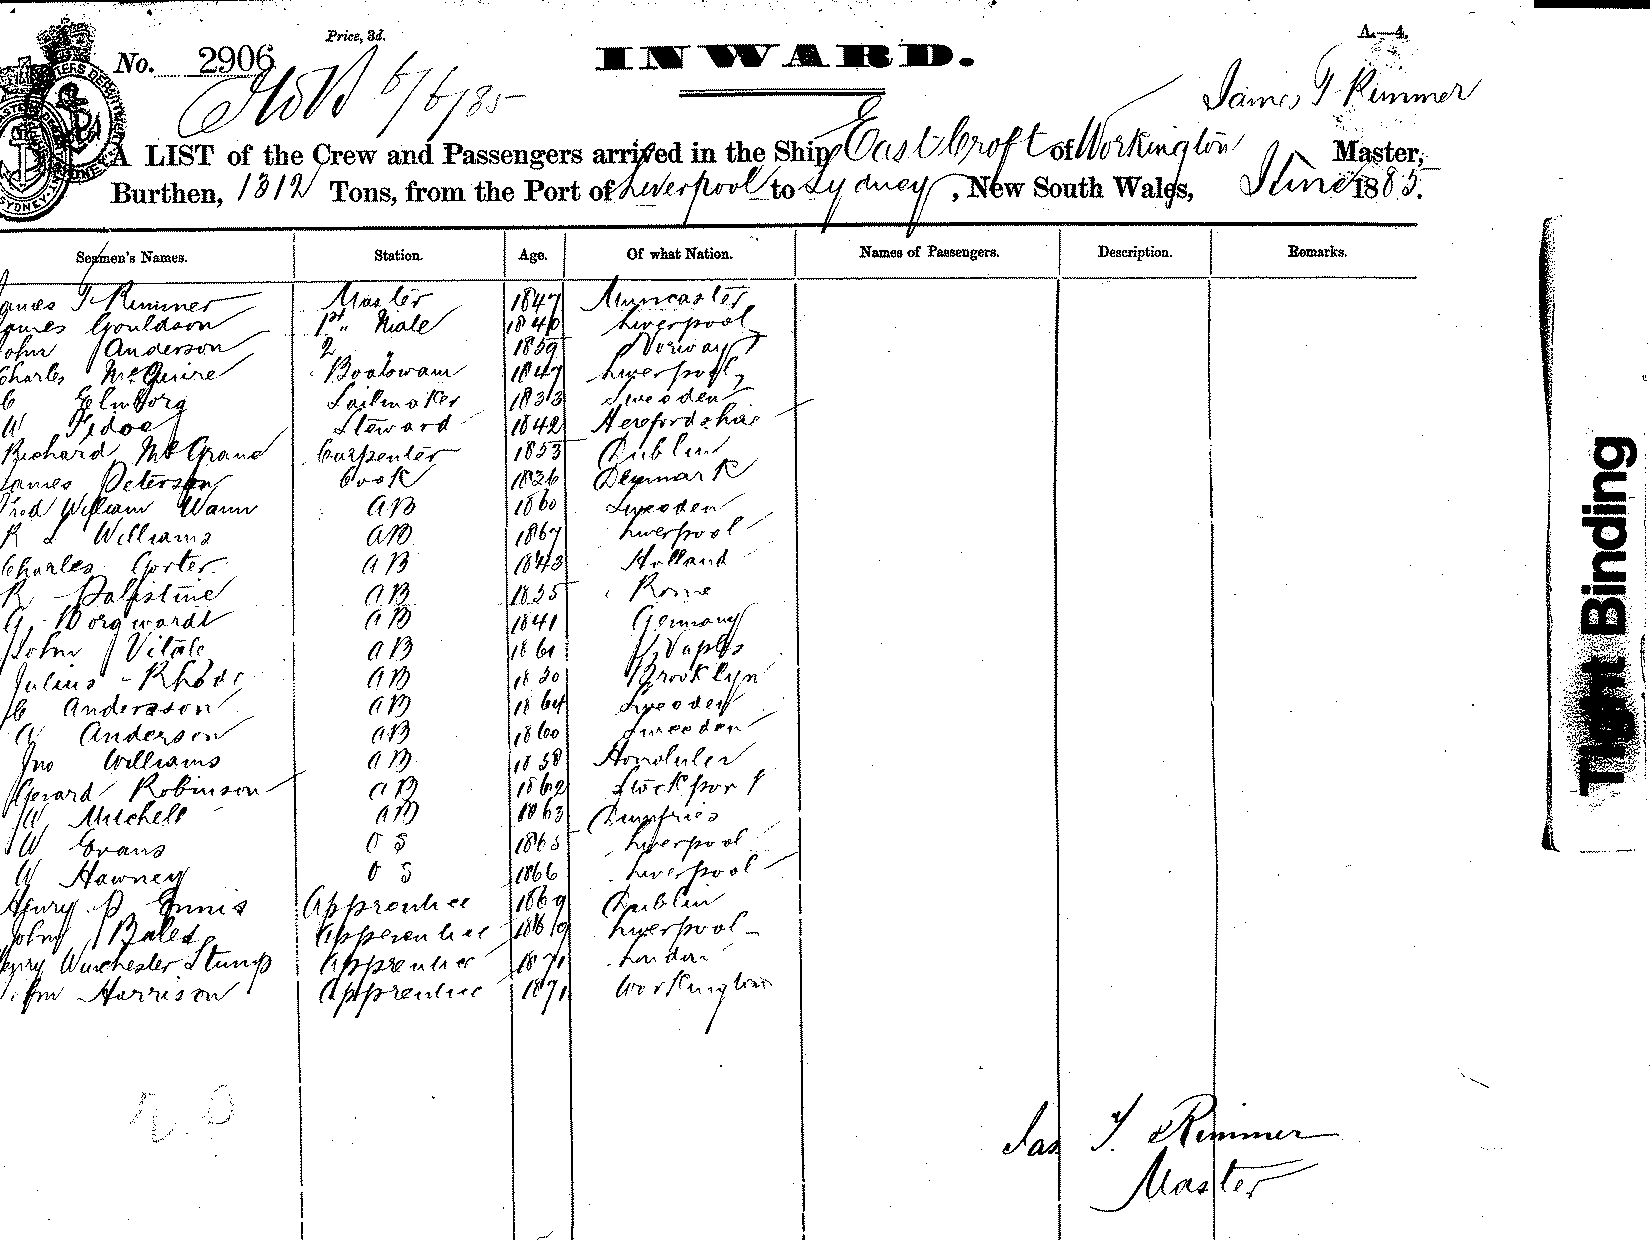 Price, 3d.
A.—4.
No. 2906
INWARD.
6/6/85
James T Rimmer
A LIST of the Crew and Passengers arrived in the Ship East Croft of Workington Master,
Burthen, 1312 Tons, from the Port of Liverpool to Sydney, New South Wales, June 1885.
Seamen's Names. Station. Age. Of what Nation. Names of Passengers. Description. Remarks.
James T Rimmer Master 1847 Muncaster
James Gouldson 1st Mate 1840 Liverpool
John Anderson 2 1859 Norway
Charles McGuire Boatswain 1847 Liverpool
C Elmborg Sailmaker 1833 Sweeden
W Steward 1842 Herefordshire
Richard McGrane Carpenter 1853 Dublin
James Peterson Cook 1836 Denmark
Fred William Wann AB 1860 Sweeden
R L Williams AB 1867 Liverpool
Charles Gorter AB 1843 Holland
R Palistine AB 1835 Rome
G. Borgwardt AB 1841 Germany
John Vitale AB 1861 Naples
Julius Rhode AB 1830 Brooklyn
C Anderson AB 1864 Sweeden
A Anderson AB 1860 Sweeden
Jno Williams AB 1858 Honoluler
Gerard Robinson AB 1862 Stockport
W Mitchell AB 1863 Dumfries
W Evans OS 1865 Liverpool
W Hawney OS 1866 Liverpool
Henry P Ennis Apprentice 1869 Dublin
John Bales Apperentice 1869 Liverpool
Henry Winchester Stump Apprentice 1871 London
John Harrison Apprentice 1871 Workington
Jas T. Rimmer
Master
Tight Binding